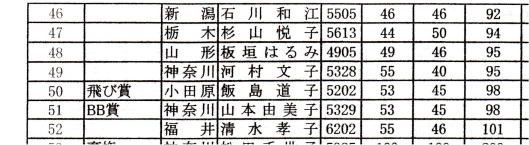 46 新潟 石川和江 5505 46 46 92
47 栃木 杉山悦子 5613 44 50 94
48 山形 板垣はるみ 4905 49 46 95
49 神奈川 河村文子 5328 55 40 95
50 飛び賞 小田原 飯島道子 5202 53 45 98
51 BB賞 神奈川 山本由美子 5329 53 45 98
52 福井 清水孝子 6202 55 46 101